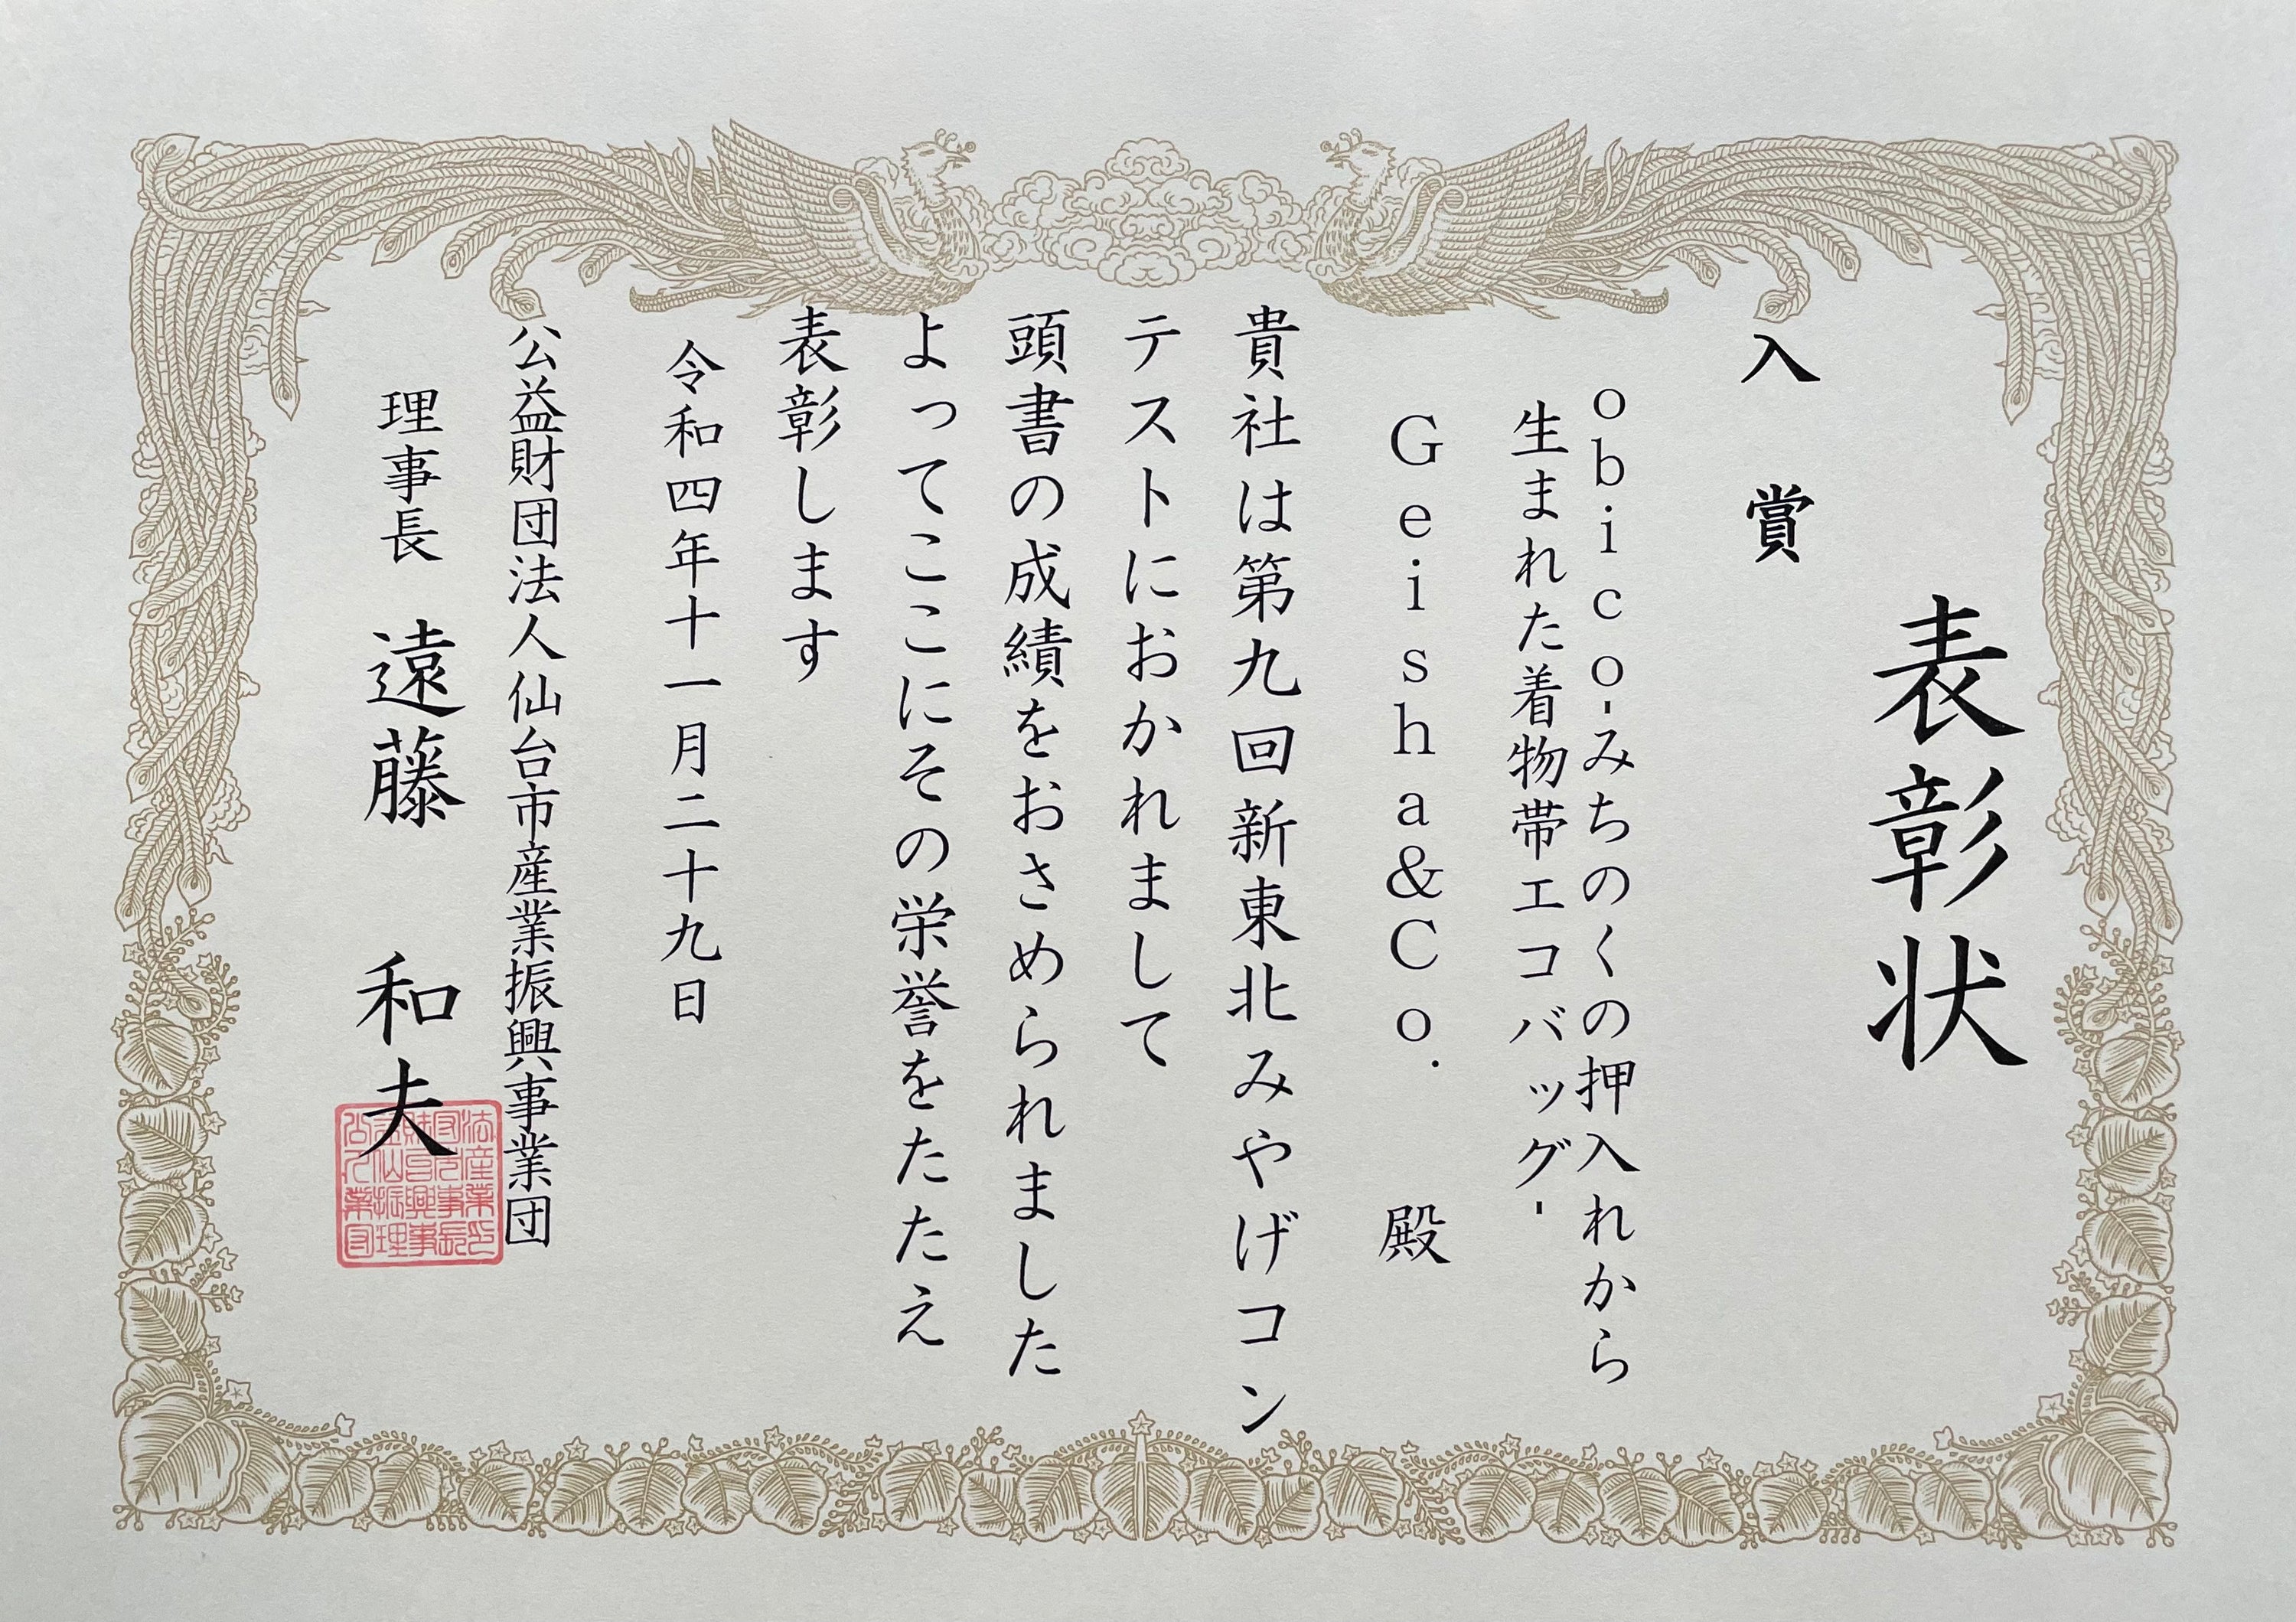 表彰状
入賞
obico-みちのくの押入れから
生まれた着物帯エコバッグ-
Geisha&Co. 殿
貴社は第九回新東北みやげコン
テストにおかれまして
頭書の成績をおさめられました
よってここにその栄誉をたたえ
表彰します
令和四年十一月二十九日
公益財団法人仙台市産業振興事業団
理事長 遠藤 和夫